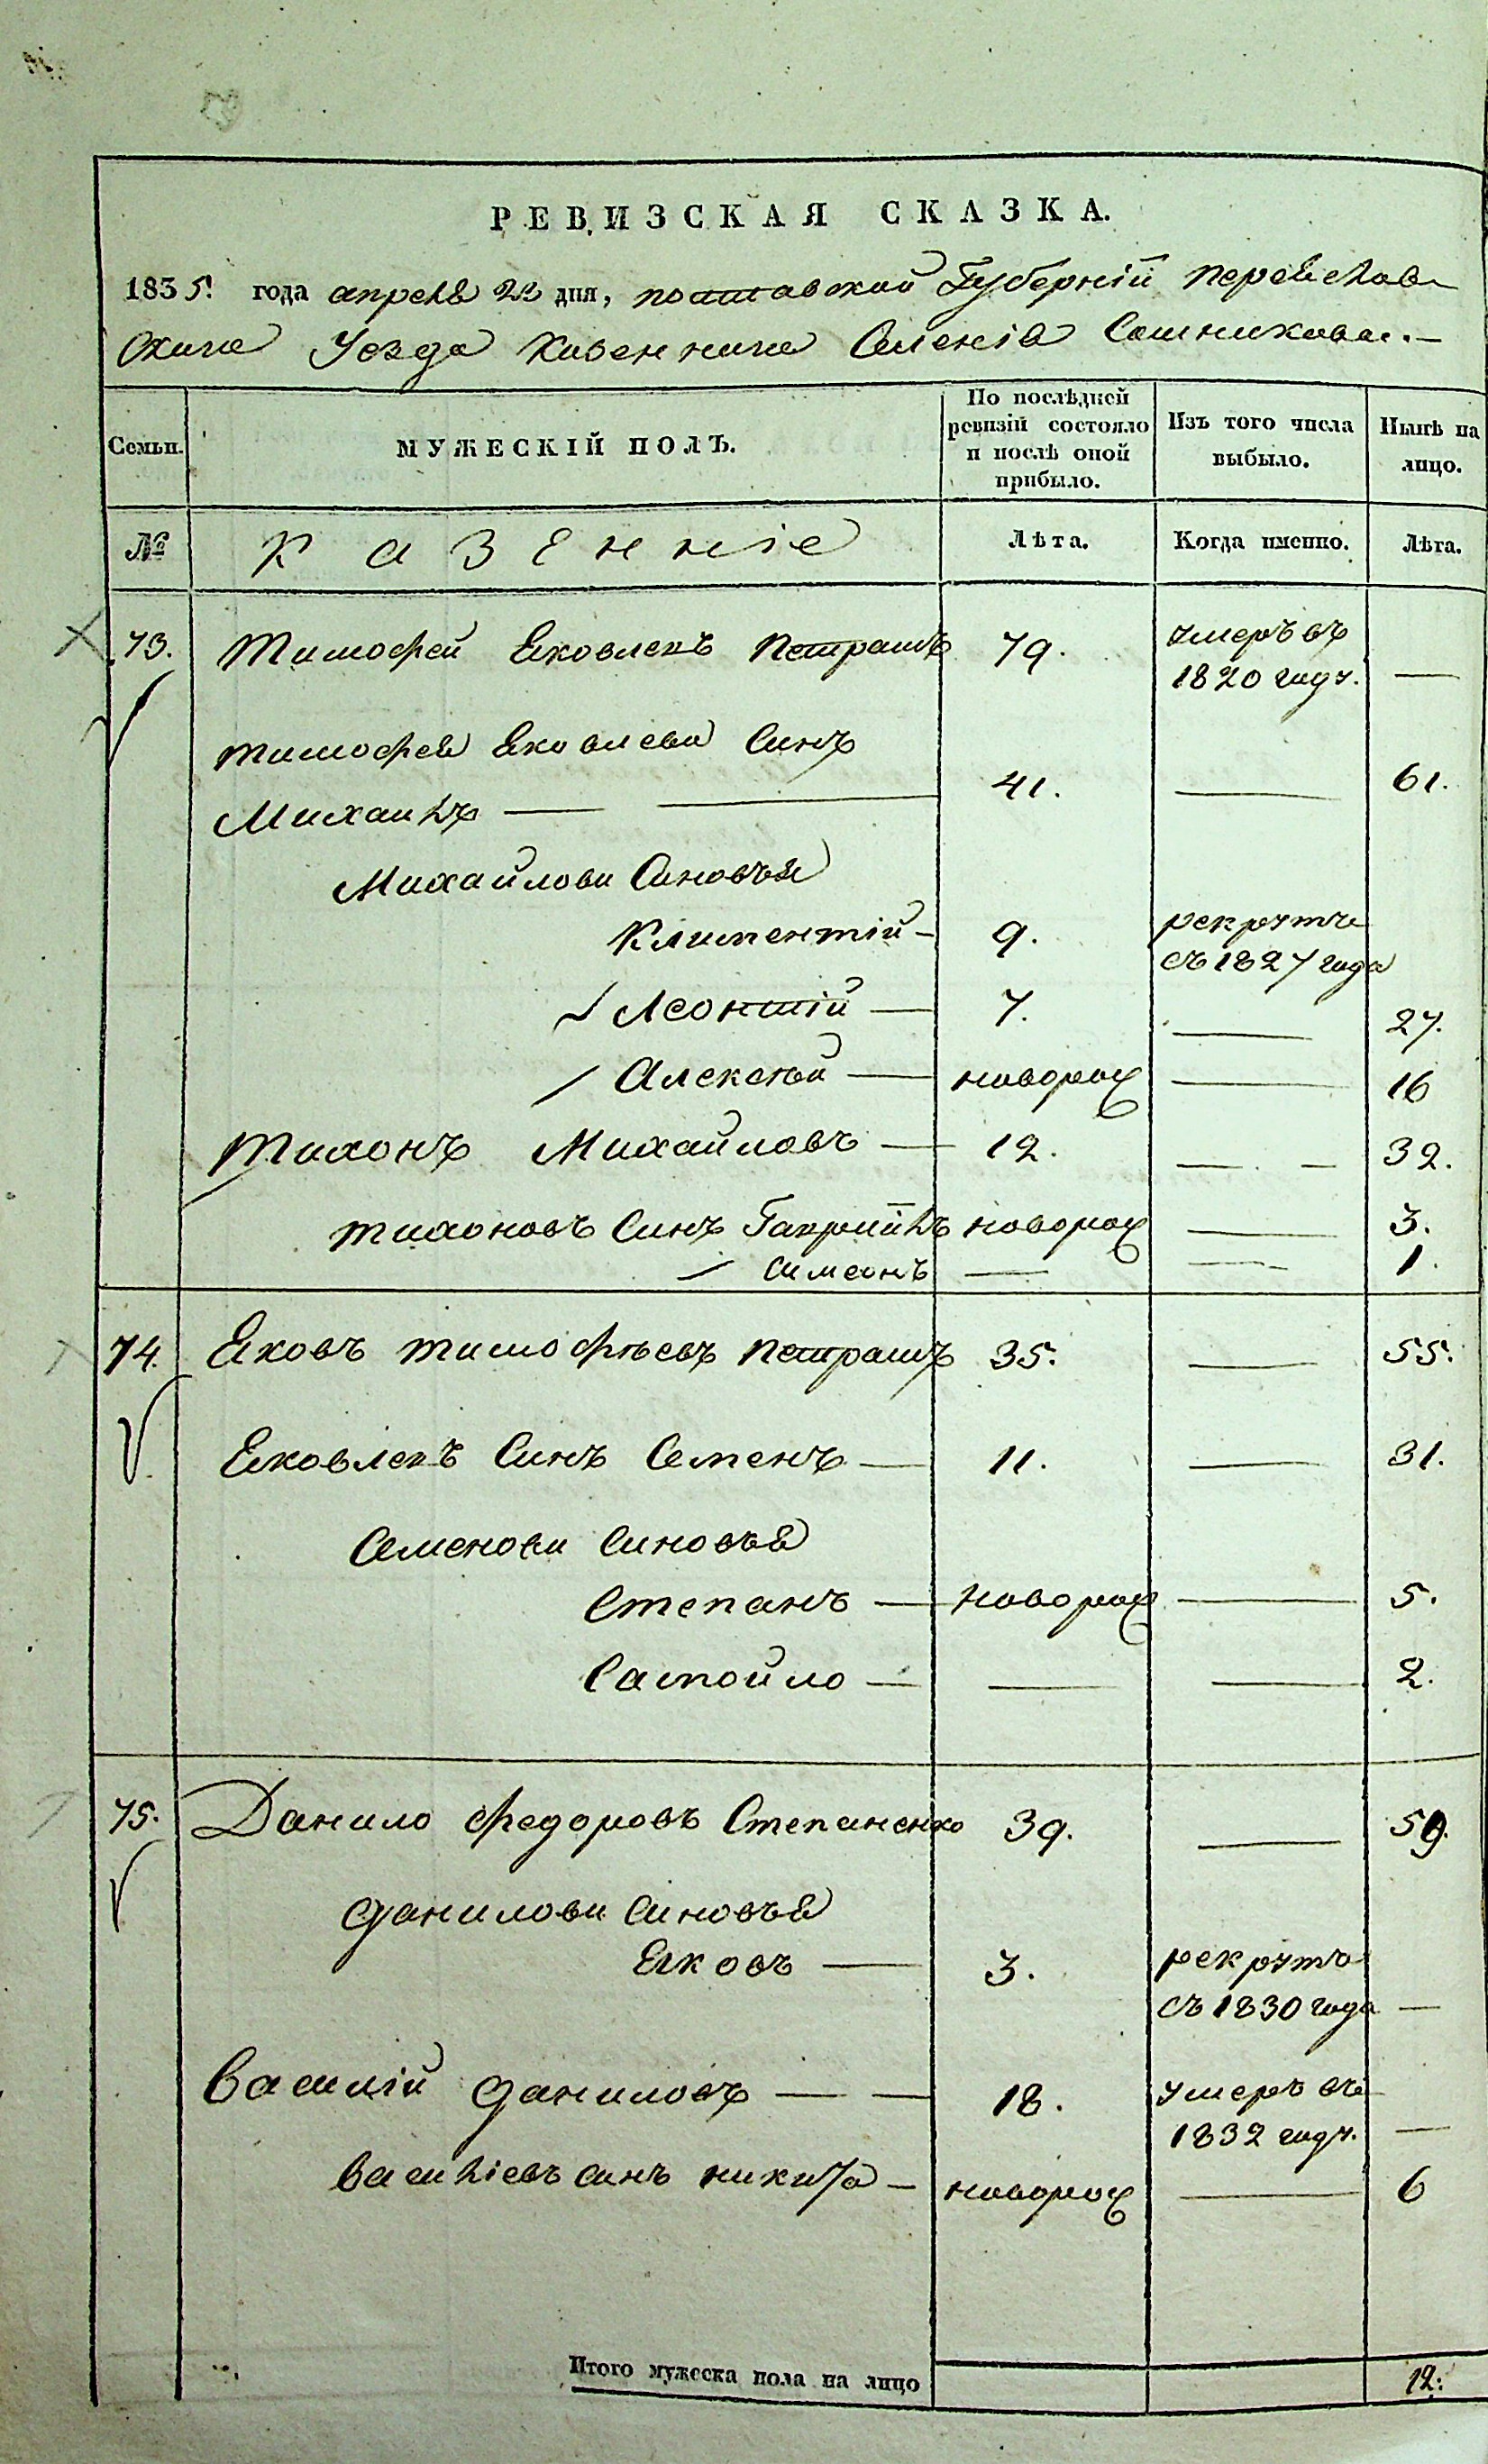 РЕВИЗСКАЯ СКАЗКА.
1835. года апреля 22 дня, полтавской Губерніи Переяслав
скаго Уезда казеннаго Селенія Сошникова.—
Семьи.
МУЖЕСКІЙ ПОЛЪ.
По послѣдней ревизіи состояло и послѣ оной прибыло.
Изъ того числа выбыло.
Нынѣ на лицо.
№ Казенніе Лѣта. Когда именно. Лѣта.
73. Тимофей Яковлевъ Петрашъ 79. умеръ въ 1820 году. —
тимофея Яковлева Синъ
Михаилъ — — 41. — 61.
Михайлови Синовъя
Климентій — 9. рекрутъ съ 1827 года
Леонтій — 7. — 27.
Алексѣй — новорож — 16
Тихонъ Михайловъ — 12. — . — 32.
тихоновъ Синъ Гавріилъ новорож — 3.
Симеонъ — — 1.
74. Яковъ тимофѣевъ Петрашъ 35. — 55.
Яковлевъ Синъ Семенъ — 11. — 31.
Семенови Синовъя
Степанъ — новорож — 5.
Самойло — — — 2.
75. Данило Федоровъ Степаненко 39. — 59.
данилови Синовъя
Яковъ — 3. рекрутъ съ 1830 года —
Василій даниловъ — — 18. умеръ въ 1832 году. —
василіевъ синъ никита — новорож — 6
Итого мужеска пола на лицо 12.